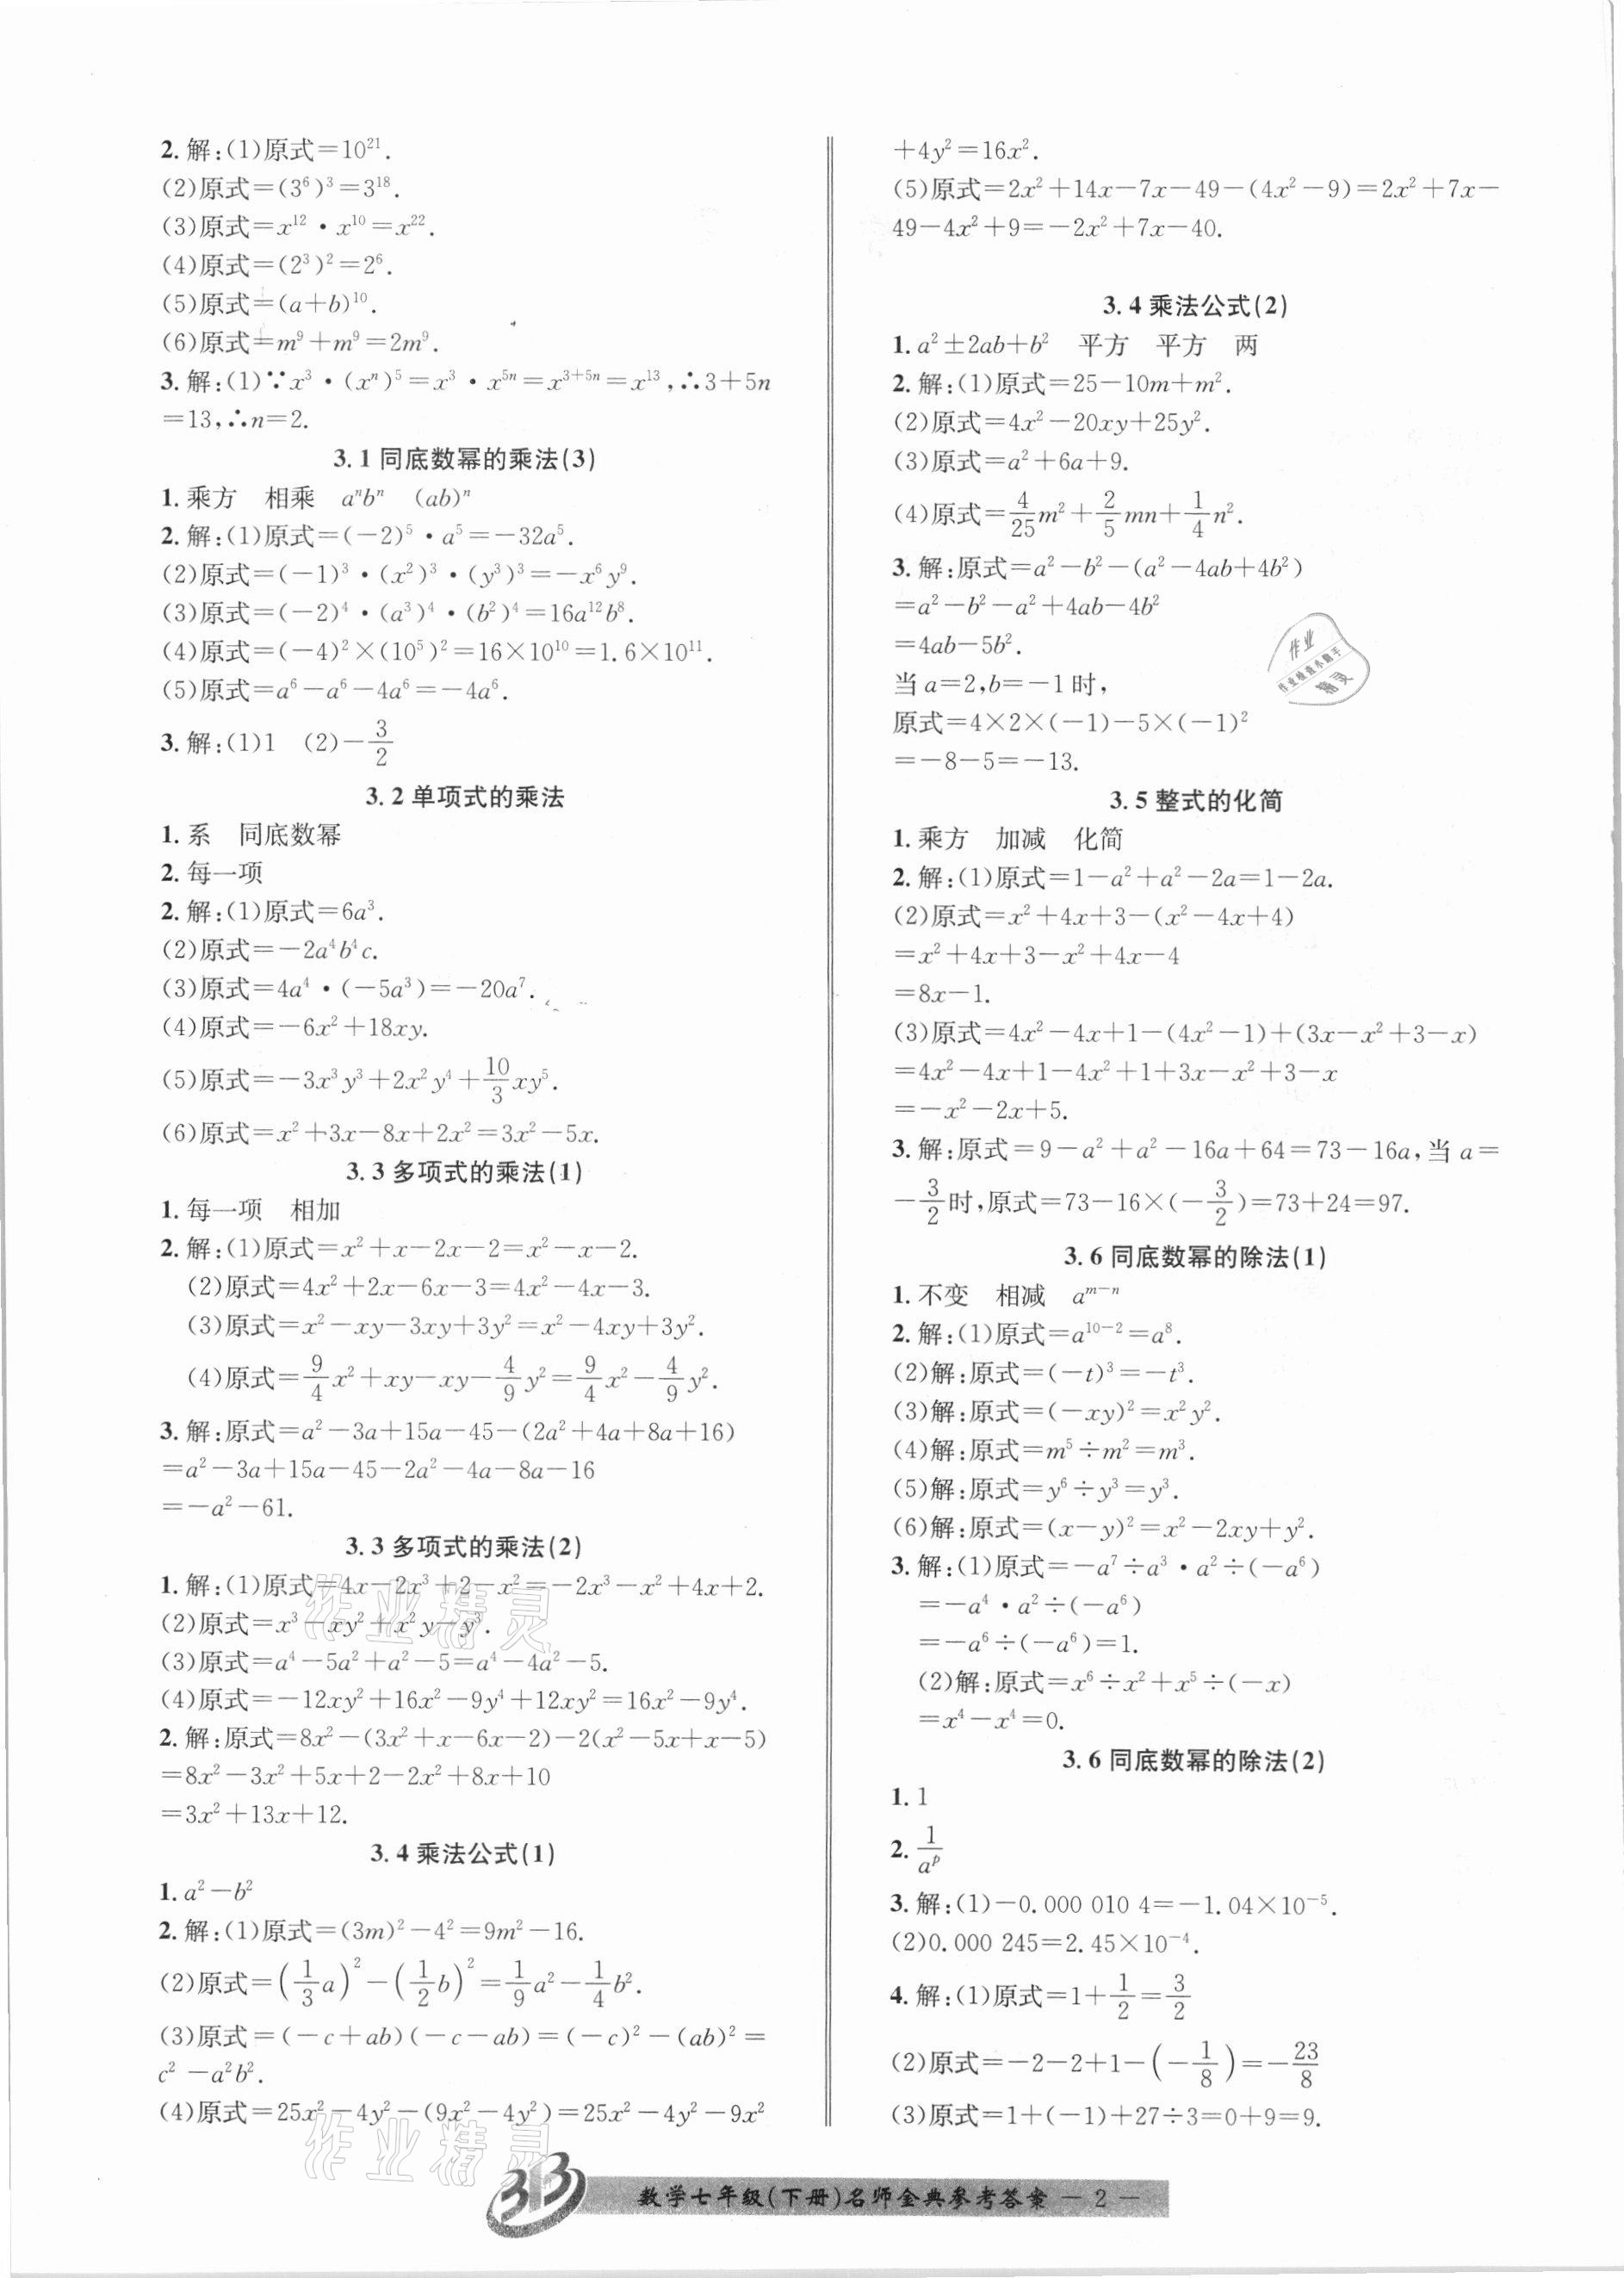 2.解:(1)原式=10²¹.
(2)原式=(3⁶)³=3¹⁸.
(3)原式=x¹²·x¹⁰=x²².
(4)原式=(2³)²=2⁶.
(5)原式=(a+b)¹⁰.
(6)原式=m⁹+m⁹=2m⁹.
3.解:(1)∵x³·(xⁿ)⁵=x³·x⁵ⁿ=x³⁺⁵ⁿ=x¹³,∴3+5n
=13,∴n=2.
3.1同底数幂的乘法(3)
1.乘方 相乘 aⁿbⁿ (ab)ⁿ
2.解:(1)原式=(-2)⁵·a⁵=-32a⁵.
(2)原式=(-1)³·(x²)³·(y³)³=-x⁶y⁹.
(3)原式=(-2)⁴·(a³)⁴·(b²)⁴=16a¹²b⁸.
(4)原式=(-4)²×(10⁵)²=16×10¹⁰=1.6×10¹¹.
(5)原式=a⁶-a⁶-4a⁶=-4a⁶.
3.解:(1)1 (2)-3/2
3.2单项式的乘法
1.系 同底数幂
2.每一项
2.解:(1)原式=6a³.
(2)原式=-2a⁴b⁴c.
(3)原式=4a⁴·(-5a³)=-20a⁷.
(4)原式=-6x²+18xy.
(5)原式=-3x³y³+2x²y⁴+10/3xy⁵.
(6)原式=x²+3x-8x+2x²=3x²-5x.
3.3多项式的乘法(1)
1.每一项 相加
2.解:(1)原式=x²+x-2x-2=x²-x-2.
(2)原式=4x²+2x-6x-3=4x²-4x-3.
(3)原式=x²-xy-3xy+3y²=x²-4xy+3y².
(4)原式=9/4x²+xy-xy-4/9y²=9/4x²-4/9y².
3.解:原式=a²-3a+15a-45-(2a²+4a+8a+16)
=a²-3a+15a-45-2a²-4a-8a-16
=-a²-61.
3.3多项式的乘法(2)
1.解:(1)原式=4x-2x³+2-x²=-2x³-x²+4x+2.
(2)原式=x³-xy²+x²y-y³.
(3)原式=a⁴-5a²+a²-5=a⁴-4a²-5.
(4)原式=-12xy²+16x²-9y⁴+12xy²=16x²-9y⁴.
2.解:原式=8x²-(3x²+x-6x-2)-2(x²-5x+x-5)
=8x²-3x²+5x+2-2x²+8x+10
=3x²+13x+12.
3.4乘法公式(1)
1.a²-b²
2.解:(1)原式=(3m)²-4²=9m²-16.
(2)原式=(1/3a)²-(1/2b)²=1/9a²-1/4b².
(3)原式=(-c+ab)(-c-ab)=(-c)²-(ab)²=
c²-a²b².
(4)原式=25x²-4y²-(9x²-4y²)=25x²-4y²-9x²
+4y²=16x².
(5)原式=2x²+14x-7x-49-(4x²-9)=2x²+7x-
49-4x²+9=-2x²+7x-40.
3.4乘法公式(2)
1.a²±2ab+b² 平方 平方 两
2.解:(1)原式=25-10m+m².
(2)原式=4x²-20xy+25y².
(3)原式=a²+6a+9.
(4)原式=4/25m²+2/5mn+1/4n².
3.解:原式=a²-b²-(a²-4ab+4b²)
=a²-b²-a²+4ab-4b²
=4ab-5b².
当a=2,b=-1时,
原式=4×2×(-1)-5×(-1)²
=-8-5=-13.
作业
作业检查小助手
精灵
3.5整式的化简
1.乘方 加减 化简
2.解:(1)原式=1-a²+a²-2a=1-2a.
(2)原式=x²+4x+3-(x²-4x+4)
=x²+4x+3-x²+4x-4
=8x-1.
(3)原式=4x²-4x+1-(4x²-1)+(3x-x²+3-x)
=4x²-4x+1-4x²+1+3x-x²+3-x
=-x²-2x+5.
3.解:原式=9-a²+a²-16a+64=73-16a,当a=
-3/2时,原式=73-16×(-3/2)=73+24=97.
3.6同底数幂的除法(1)
1.不变 相减 aᵐ⁻ⁿ
2.解:(1)原式=a¹⁰⁻²=a⁸.
(2)解:原式=(-t)³=-t³.
(3)解:原式=(-xy)²=x²y².
(4)解:原式=m⁵÷m²=m³.
(5)解:原式=y⁶÷y³=y³.
(6)解:原式=(x-y)²=x²-2xy+y².
3.解:(1)原式=-a⁷÷a³·a²÷(-a⁶)
=-a⁴·a²÷(-a⁶)
=-a⁶÷(-a⁶)=1.
(2)解:原式=x⁶÷x²+x⁵÷(-x)
=x⁴-x⁴=0.
3.6同底数幂的除法(2)
1.1
2.1/aᵖ
3.解:(1)-0.000 010 4=-1.04×10⁻⁵.
(2)0.000 245=2.45×10⁻⁴.
4.解:(1)原式=1+1/2=3/2
(2)原式=-2-2+1-(-1/8)=-23/8
(3)原式=1+(-1)+27÷3=0+9=9.
作业精灵
作业精灵
数学七年级(下册)名师金典参考答案 -2-